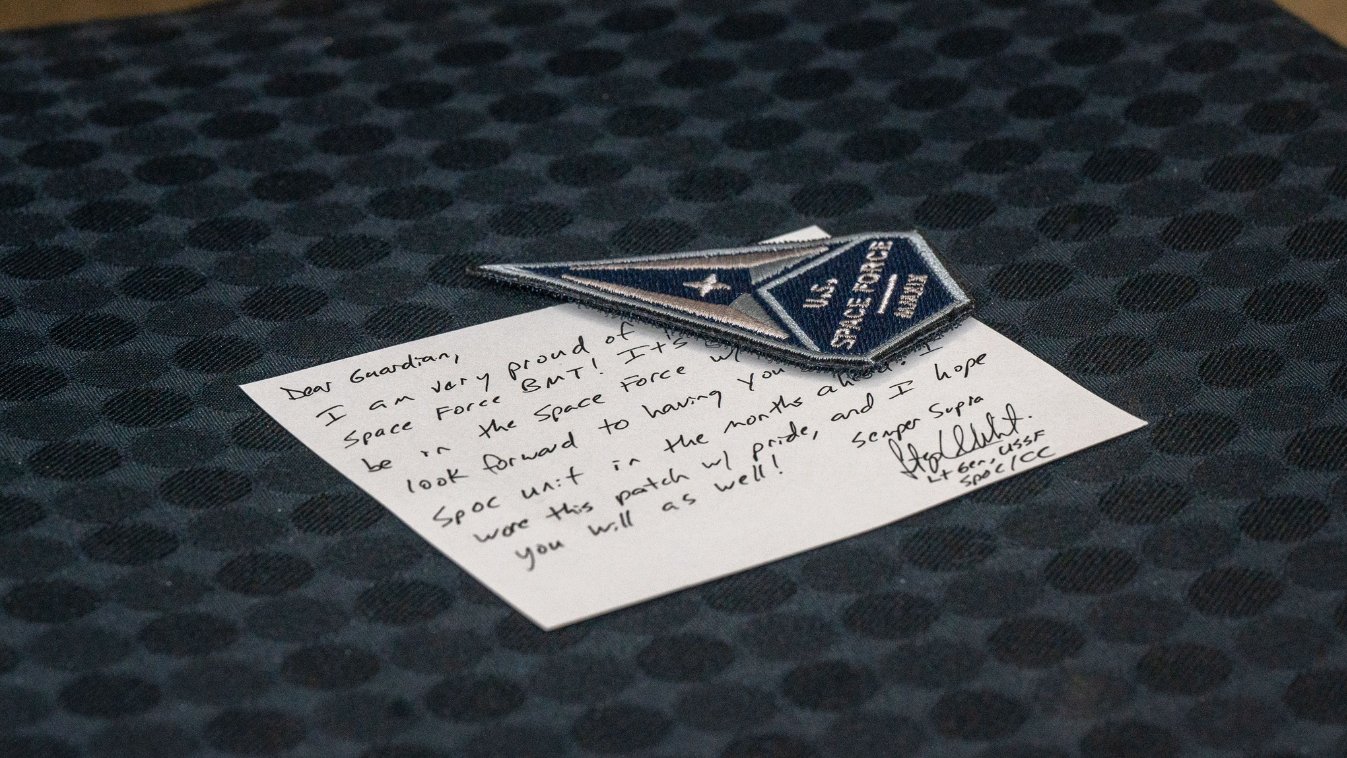 Dear Guardian,
I am very proud of
Space Force BMT! It's
be in the Space Force
look forward to having you
SpOC unit in the months ahead. I
wore this patch w/ pride, and I hope
you will as well!
Semper Supra
Lt Gen, USSF
SpOC/CC
U.S.
SPACE FORCE
MMXIX